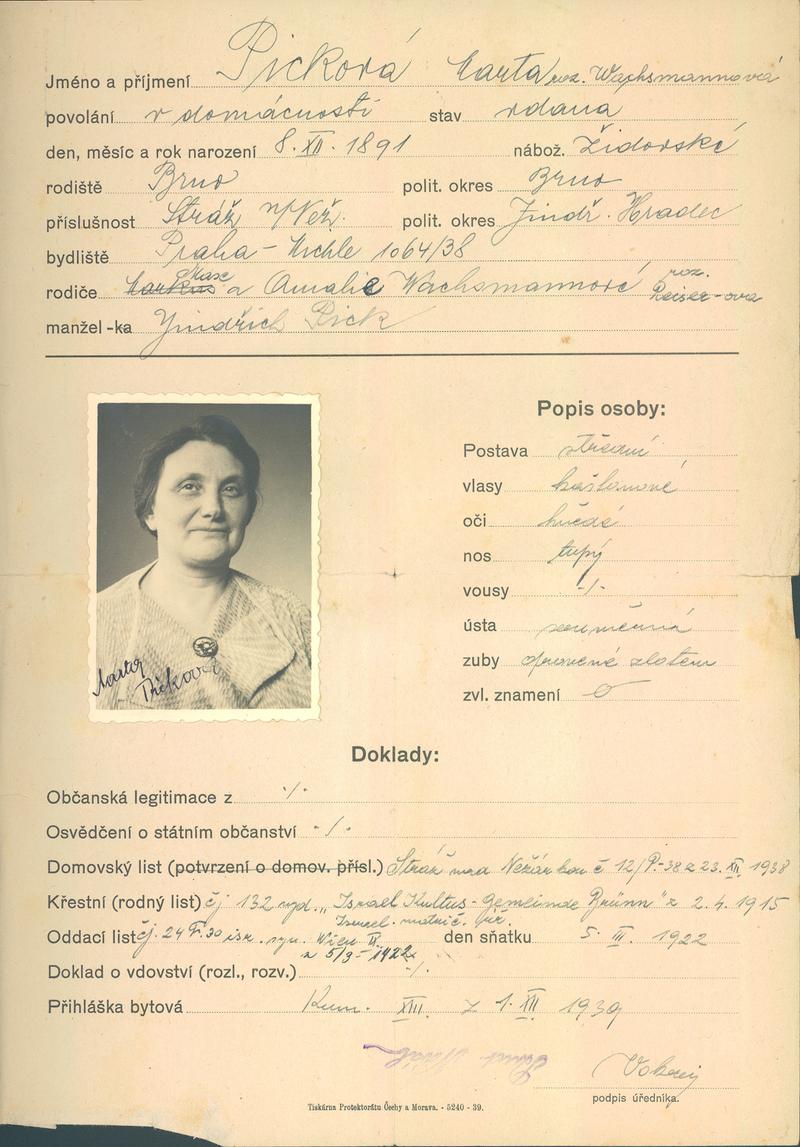 Jméno a příjmení Picková Marta roz. Wachsmannová
povolání v domácnosti stav vdana
den, měsíc a rok narození 8. XII. 1891 nábož. Židovské
rodiště Brno polit. okres Brno
příslušnost Stráž n/Než. polit. okres Jindř. Hradec
bydliště Praha - Michle 1064/38
Max roz.
rodiče Markus a Amalie Wachsmannové Reiser-ova
manžel -ka Jindřich Pick
Popis osoby:
Postava střední
vlasy kaštanové
oči hnědé
nos tupý
vousy -/-
ústa souměrná
zuby opravené zlatem
zvl. znamení
Marta
Picková
Doklady:
Občanská legitimace z ·/·
Osvědčení o státním občanství ·/·
Domovský list (potvrzení o domov. přísl.) Stráž nad Nežárkou č 12/P-38 z 23. XII. 1938
Křestní (rodný list) čj 132 vyd. „Israel Kultus-Gemeinde Brünn" z 2. 4. 1915
Israel. matrič. úř.
Oddací list čj. 24 F. 30 isr. Wien II. den sňatku 5. III. 1922
z 5/3-1922
Doklad o vdovství (rozl., rozv.) -/.
Přihláška bytová Kom. XIII. z 1. XII 1939
podpis úředníka.
Tiskárna Protektorátu Čechy a Morava. - 5240 - 39.